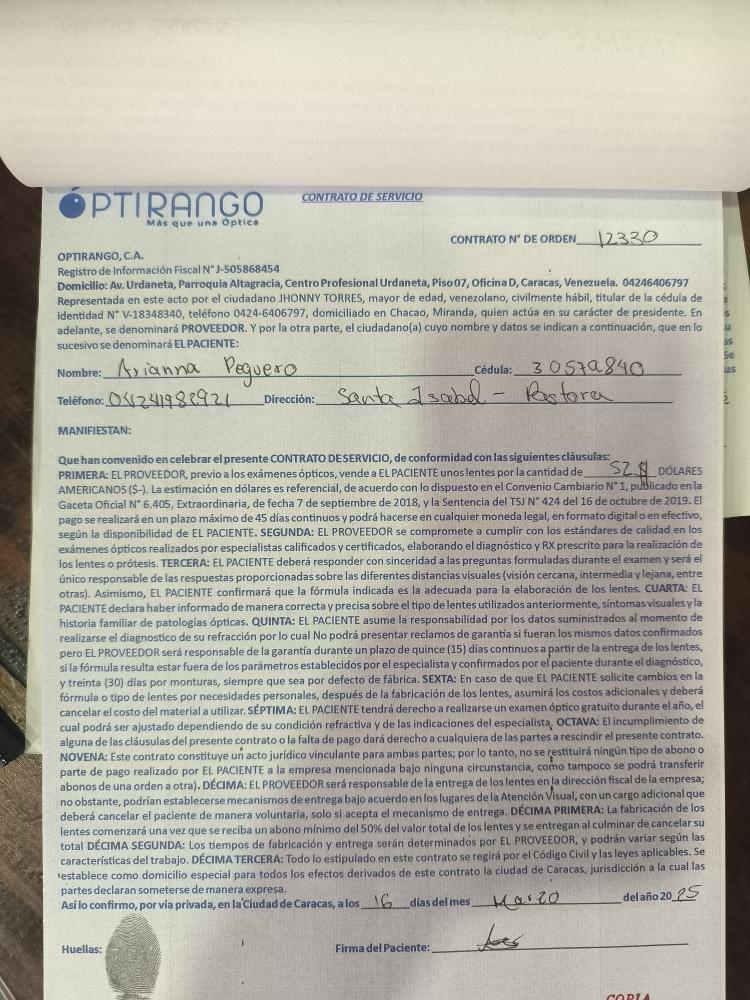 OPTIRANGO
Más que una Óptica
CONTRATO DE SERVICIO
CONTRATO N° DE ORDEN 12330
OPTIRANGO, C.A.
Registro de Información Fiscal N° J-505868454
Domicilio: Av. Urdaneta, Parroquia Altagracia, Centro Profesional Urdaneta, Piso 07, Oficina D, Caracas, Venezuela. 04246406797
Representada en este acto por el ciudadano JHONNY TORRES, mayor de edad, venezolano, civilmente hábil, titular de la cédula de
identidad N° V-18348340, teléfono 0424-6406797, domiciliado en Chacao, Miranda, quien actúa en su carácter de presidente. En
adelante, se denominará PROVEEDOR. Y por la otra parte, el ciudadano(a) cuyo nombre y datos se indican a continuación, que en lo
sucesivo se denominará EL PACIENTE:
Nombre: Arianna Peguero Cédula: 30579840
Teléfono: 04241982921 Dirección: Santa Isabel - Pastora
MANIFIESTAN:
Que han convenido en celebrar el presente CONTRATO DE SERVICIO, de conformidad con las siguientes cláusulas:
PRIMERA: EL PROVEEDOR, previo a los exámenes ópticos, vende a EL PACIENTE unos lentes por la cantidad de 52 $ DÓLARES
AMERICANOS ($-). La estimación en dólares es referencial, de acuerdo con lo dispuesto en el Convenio Cambiario N° 1, publicado en la
Gaceta Oficial N° 6.405, Extraordinaria, de fecha 7 de septiembre de 2018, y la Sentencia del TSJ N° 424 del 16 de octubre de 2019. El
pago se realizará en un plazo máximo de 45 días continuos y podrá hacerse en cualquier moneda legal, en formato digital o en efectivo,
según la disponibilidad de EL PACIENTE. SEGUNDA: EL PROVEEDOR se compromete a cumplir con los estándares de calidad en los
exámenes ópticos realizados por especialistas calificados y certificados, elaborando el diagnóstico y RX prescrito para la realización de
los lentes o prótesis. TERCERA: EL PACIENTE deberá responder con sinceridad a las preguntas formuladas durante el examen y será el
único responsable de las respuestas proporcionadas sobre las diferentes distancias visuales (visión cercana, intermedia y lejana, entre
otras). Asimismo, EL PACIENTE confirmará que la fórmula indicada es la adecuada para la elaboración de los lentes. CUARTA: EL
PACIENTE declara haber informado de manera correcta y precisa sobre el tipo de lentes utilizados anteriormente, síntomas visuales y la
historia familiar de patologías ópticas. QUINTA: EL PACIENTE asume la responsabilidad por los datos suministrados al momento de
realizarse el diagnostico de su refracción por lo cual No podrá presentar reclamos de garantía si fueran los mismos datos confirmados
pero EL PROVEEDOR será responsable de la garantía durante un plazo de quince (15) días continuos a partir de la entrega de los lentes,
si la fórmula resulta estar fuera de los parámetros establecidos por el especialista y confirmados por el paciente durante el diagnóstico,
y treinta (30) días por monturas, siempre que sea por defecto de fábrica. SEXTA: En caso de que EL PACIENTE solicite cambios en la
fórmula o tipo de lentes por necesidades personales, después de la fabricación de los lentes, asumirá los costos adicionales y deberá
cancelar el costo del material a utilizar. SÉPTIMA: EL PACIENTE tendrá derecho a realizarse un examen óptico gratuito durante el año, el
cual podrá ser ajustado dependiendo de su condición refractiva y de las indicaciones del especialista. OCTAVA: El incumplimiento de
alguna de las cláusulas del presente contrato o la falta de pago dará derecho a cualquiera de las partes a rescindir el presente contrato.
NOVENA: Este contrato constituye un acto jurídico vinculante para ambas partes; por lo tanto, no se restituirá ningún tipo de abono o
parte de pago realizado por EL PACIENTE a la empresa mencionada bajo ninguna circunstancia, como tampoco se podrá transferir
abonos de una orden a otra). DÉCIMA: EL PROVEEDOR será responsable de la entrega de los lentes en la dirección fiscal de la empresa;
no obstante, podrían establecerse mecanismos de entrega bajo acuerdo en los lugares de la Atención Visual, con un cargo adicional que
deberá cancelar el paciente de manera voluntaria, solo si acepta el mecanismo de entrega. DÉCIMA PRIMERA: La fabricación de los
lentes comenzará una vez que se reciba un abono mínimo del 50% del valor total de los lentes y se entregan al culminar de cancelar su
total DÉCIMA SEGUNDA: Los tiempos de fabricación y entrega serán determinados por EL PROVEEDOR, y podrán variar según las
características del trabajo. DÉCIMA TERCERA: Todo lo estipulado en este contrato se regirá por el Código Civil y las leyes aplicables. Se
establece como domicilio especial para todos los efectos derivados de este contrato la ciudad de Caracas, jurisdicción a la cual las
partes declaran someterse de manera expresa.
Así lo confirmo, por vía privada, en la Ciudad de Caracas, a los 16 días del mes Marzo del año 2025
Huellas: Firma del Paciente:
COPIA